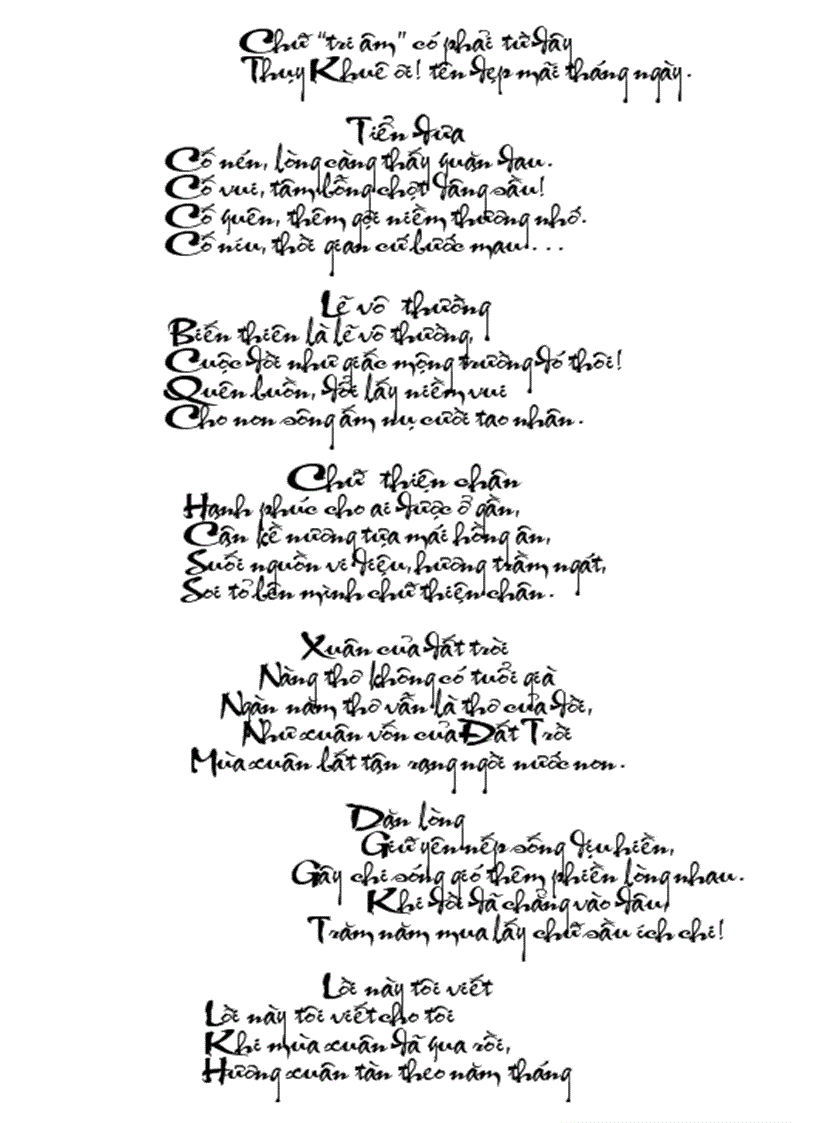 Chữ "tri âm" có phải từ đây
Thụy Khuê ơi! tên đẹp mãi tháng ngày.
Tiễn đưa
Cố nén, lòng càng thấy quặn đau.
Cố vui, tâm bỗng chợt dâng sầu!
Cố quên, thêm gợi niềm thương nhớ.
Cố níu, thời gian cứ bước mau...
Lẽ vô thường
Biến thiên là lẽ vô thường,
Cuộc đời như giấc mộng trường đó thôi!
Quên buồn, đổi lấy niềm vui
Cho non sông ấm nụ cười tao nhân.
Chữ thiện chân
Hạnh phúc cho ai được ở gần,
Cận kề nương tựa mái hồng ân,
Suối nguồn vi diệu, hương trầm ngát,
Soi tỏ lên mình chữ thiện chân.
Xuân của đất trời
Nàng thơ không có tuổi già
Ngàn năm thơ vẫn là thơ của đời,
Như xuân vốn của Đất Trời
Mùa xuân bất tận rạng ngời nước non.
Dặn lòng
Giữ yên nếp sống dịu hiền,
Gây chi sóng gió thêm phiền lòng nhau.
Khi đời đã chẳng vào đâu
Trăm năm mua lấy chữ sầu ích chi!
Lời này tôi viết
Lời này tôi viết cho tôi
Khi mùa xuân đã qua rồi,
Hương xuân tàn theo năm tháng